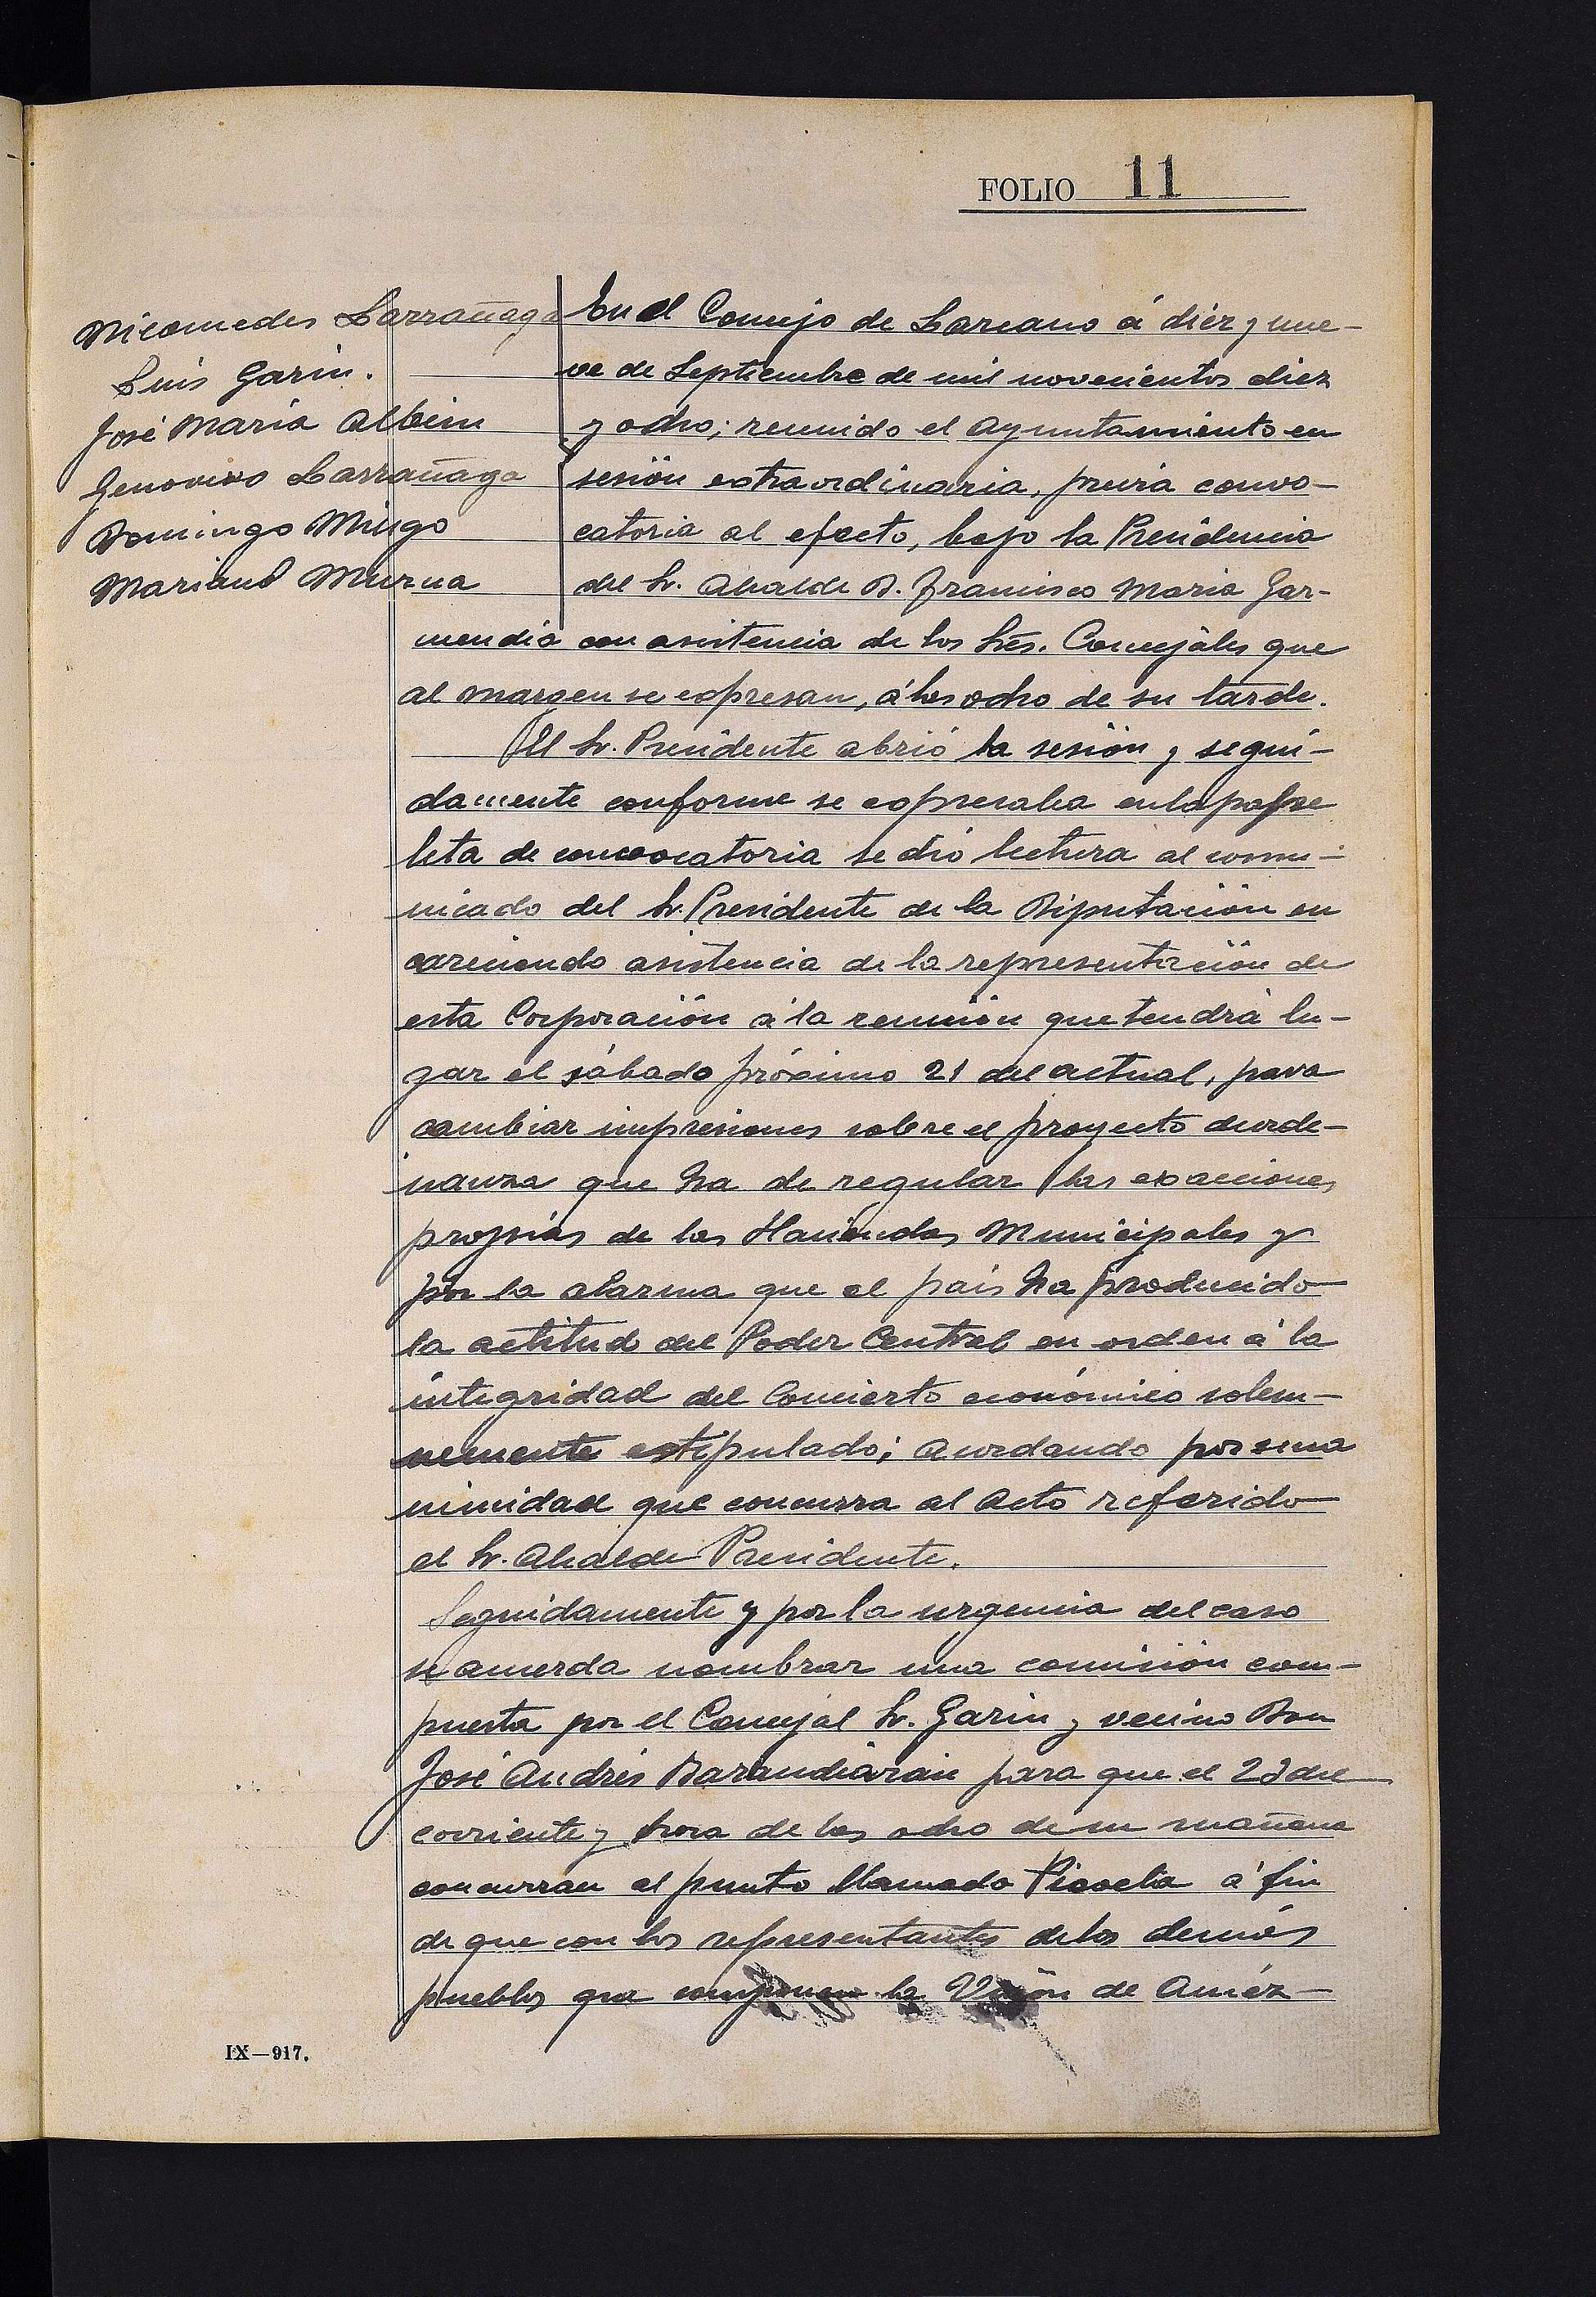 FOLIO 11
Nicomedes Larrañaga
Luis Garin.
José Maria Albisu
Genovevo Larrañaga
Domingo Mingo
Mariano Murua
En el Concejo de Lazcano á diez y nue-
ve de Septiembre de mil novecientos diez
y ocho; reunido el Ayuntamiento en
sesión extraordinaria, previa convo-
catoria al efecto, bajo la Presidencia
del Sr. Alcalde D. Francisco Maria Gar-
mendia con asistencia de los Srés. Concejales que
al margen se expresan, á las ocho de su tarde.
El Sr. Presidente abrió la sesión y segui-
damente conforme se expresaba en la pape
leta de convocatoria se dió lectura al comu-
nicado del Sr. Presidente de la Diputación en
careciendo asistencia de la representación de
esta Corporación á la reunión que tendrá lu-
gar el sábado próximo 21 del actual, para
cambiar impresiones sobre el proyecto de orde-
nanza que ha de regular las exacciones
propias de las Haciendas Municipales y
por la alarma que el país ha producido
la actitud del Poder Central en orden á la
integridad del Concierto económico solem-
nemente estipulado; acordando por una
nimidad que concurra al acto referido
el Sr. Alcalde Presidente.
Seguidamente y por la urgencia del caso
se acuerda nombrar una comisión com-
puesta por el Concejal Sr. Garin y vecino Don
José Andrés Barandiarán para que el 23 del
corriente y hora de las ocho de su mañana
concurran al punto llamado á fin
de que con los representantes de los demás
pueblos que componen la Unión de Améz-
IX—917.